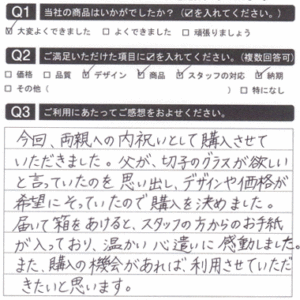 Q1 当社の商品はいかがでしたか？（☑を入れてください。）
☑大変よくできました □よくできました □頑張りましょう
Q2 ご満足いただけた項目に☑を入れてください。（複数回答可）
□価格 □品質 ☑デザイン ☑商品 ☑スタッフの対応 ☑納期
□その他（ ） □特になし
Q3 ご利用にあたってご感想をおよせください。
今回、両親への内祝いとして購入させて
いただきました。父が、切子のグラスが欲しい
と言っていたのを思い出し、デザインや価格が
希望にそっていたので購入を決めました。
届いて箱をあけると、スタッフの方からのお手紙
が入っており、温かい心遣いに感動しました。
また、購入の機会があれば、利用させていただ
きたいと思います。